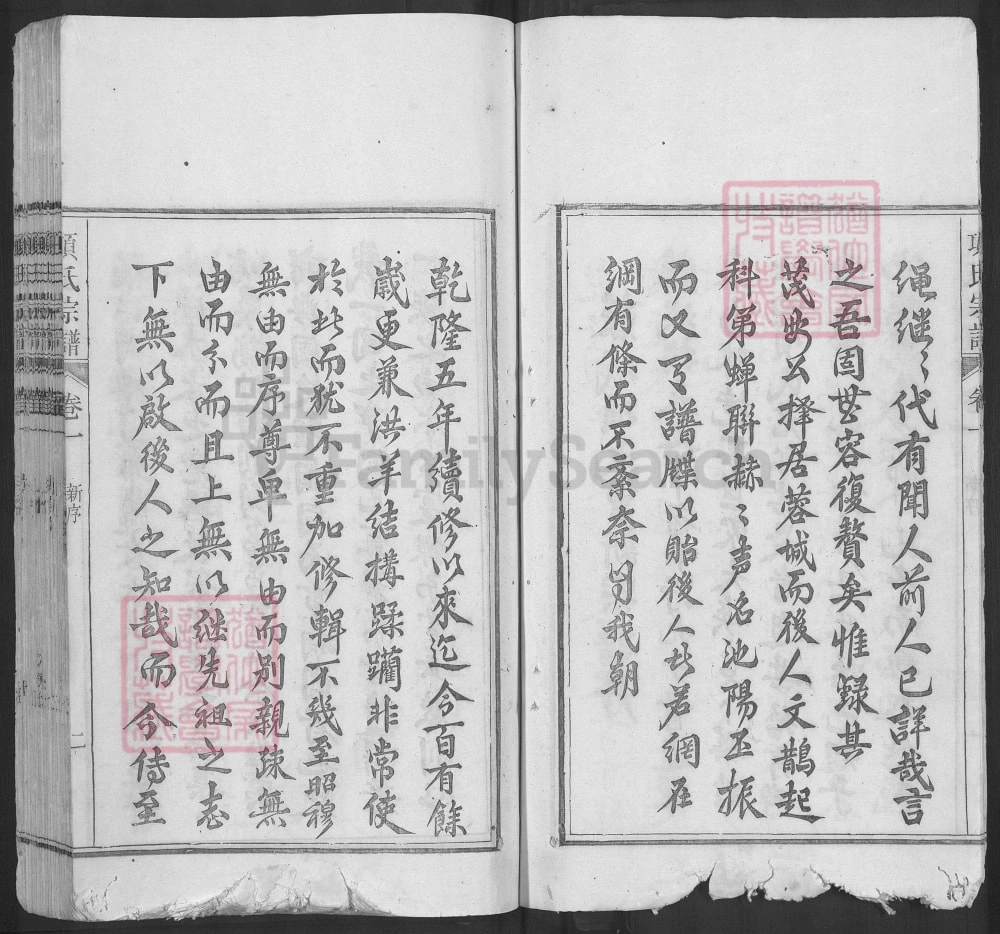 绳继〻代有聞人前人已詳哉言
之吾固無容復贅矣惟録其
茂安公擇居蓉城而後人文鵲起
科第蟬聯赫〻声名池陽丕振
而又有譜牒以貽後人此若網在
綱有條而不紊奈何我朝
乾隆五年續修以來迄今百有餘
歲更兼洪羊結搆蹂躪非常使
於此而猶不重加修輯不幾至昭穆
無由而序尊卑無由而別親疎無
由而分而且上無以继先祖之志
下無以啟後人之知哉而今傳至
項氏宗譜
卷一
新序
二
FamilySearch